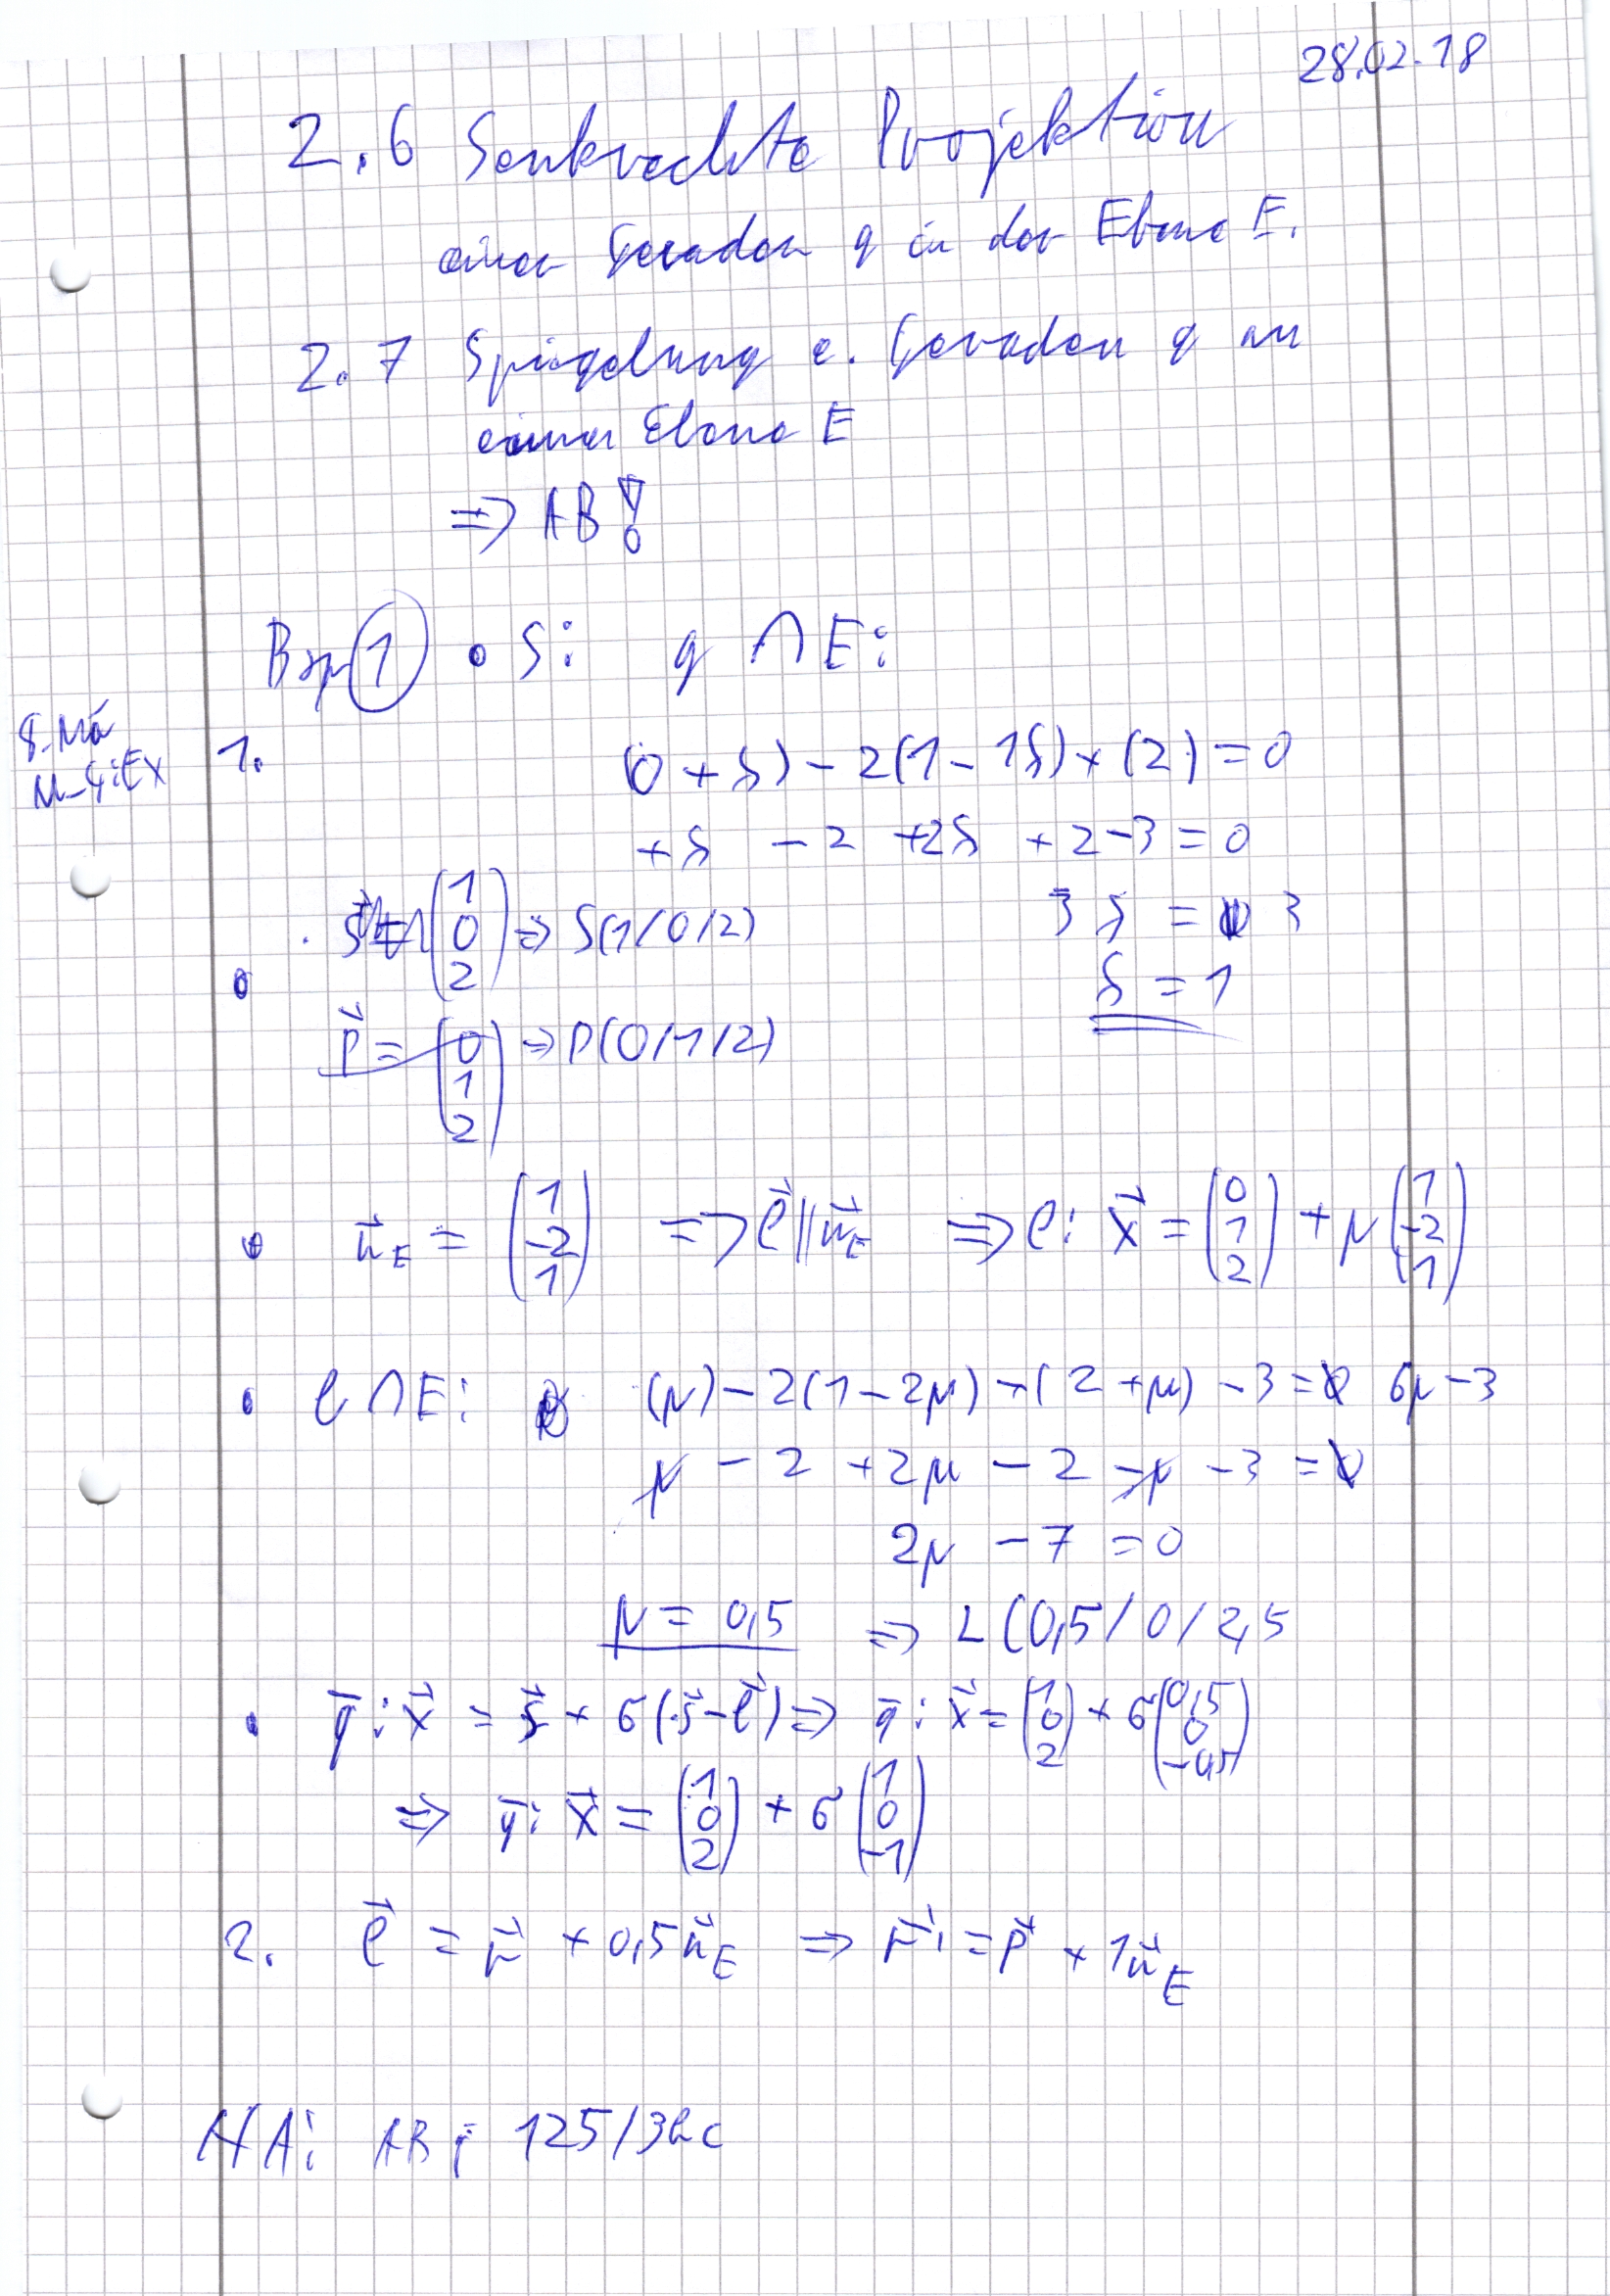 28.02.18
2.6 Senkrechte Projektion
einer Geraden g in der Ebene E.
2.7 Spiegelung e. Geraden g an
einer Ebene E
=> AB!
Bsp 1 • S: g ∩ E:
8. Mä
M-4:Ex
1. (0 + s) - 2(1 - 1s) + (2) = 0
+s - 2 + 2s + 2 - 3 = 0
(1 0 2) => S(1/0/2) 3s = 3
s = 1
p⃗ = (0 1 2) => P(0/1/2)
• n⃗E = (1 -2 1) => ℓ⃗ || n⃗E => ℓ: x⃗ = (0 1 2) + μ(1 -2 1)
• ℓ ∩ E: (μ) - 2(1 - 2μ) + (2 + μ) - 3 = 0 6μ - 3
μ - 2 + 2μ - 2 - μ - 3 = 0
2μ - 7 = 0
μ = 0,5 => L(0,5/0/2,5
• g̅: x⃗ = s⃗ + σ(s⃗ - ℓ⃗) => g̅: x⃗ = (1 0 2) + σ(0,5 0 -0,5)
=> g̅: x⃗ = (1 0 2) + σ(1 0 -1)
2. ℓ⃗ = p⃗ + 0,5n⃗E => p⃗' = p⃗ + 1n⃗E
HA: AB; 125/3bc